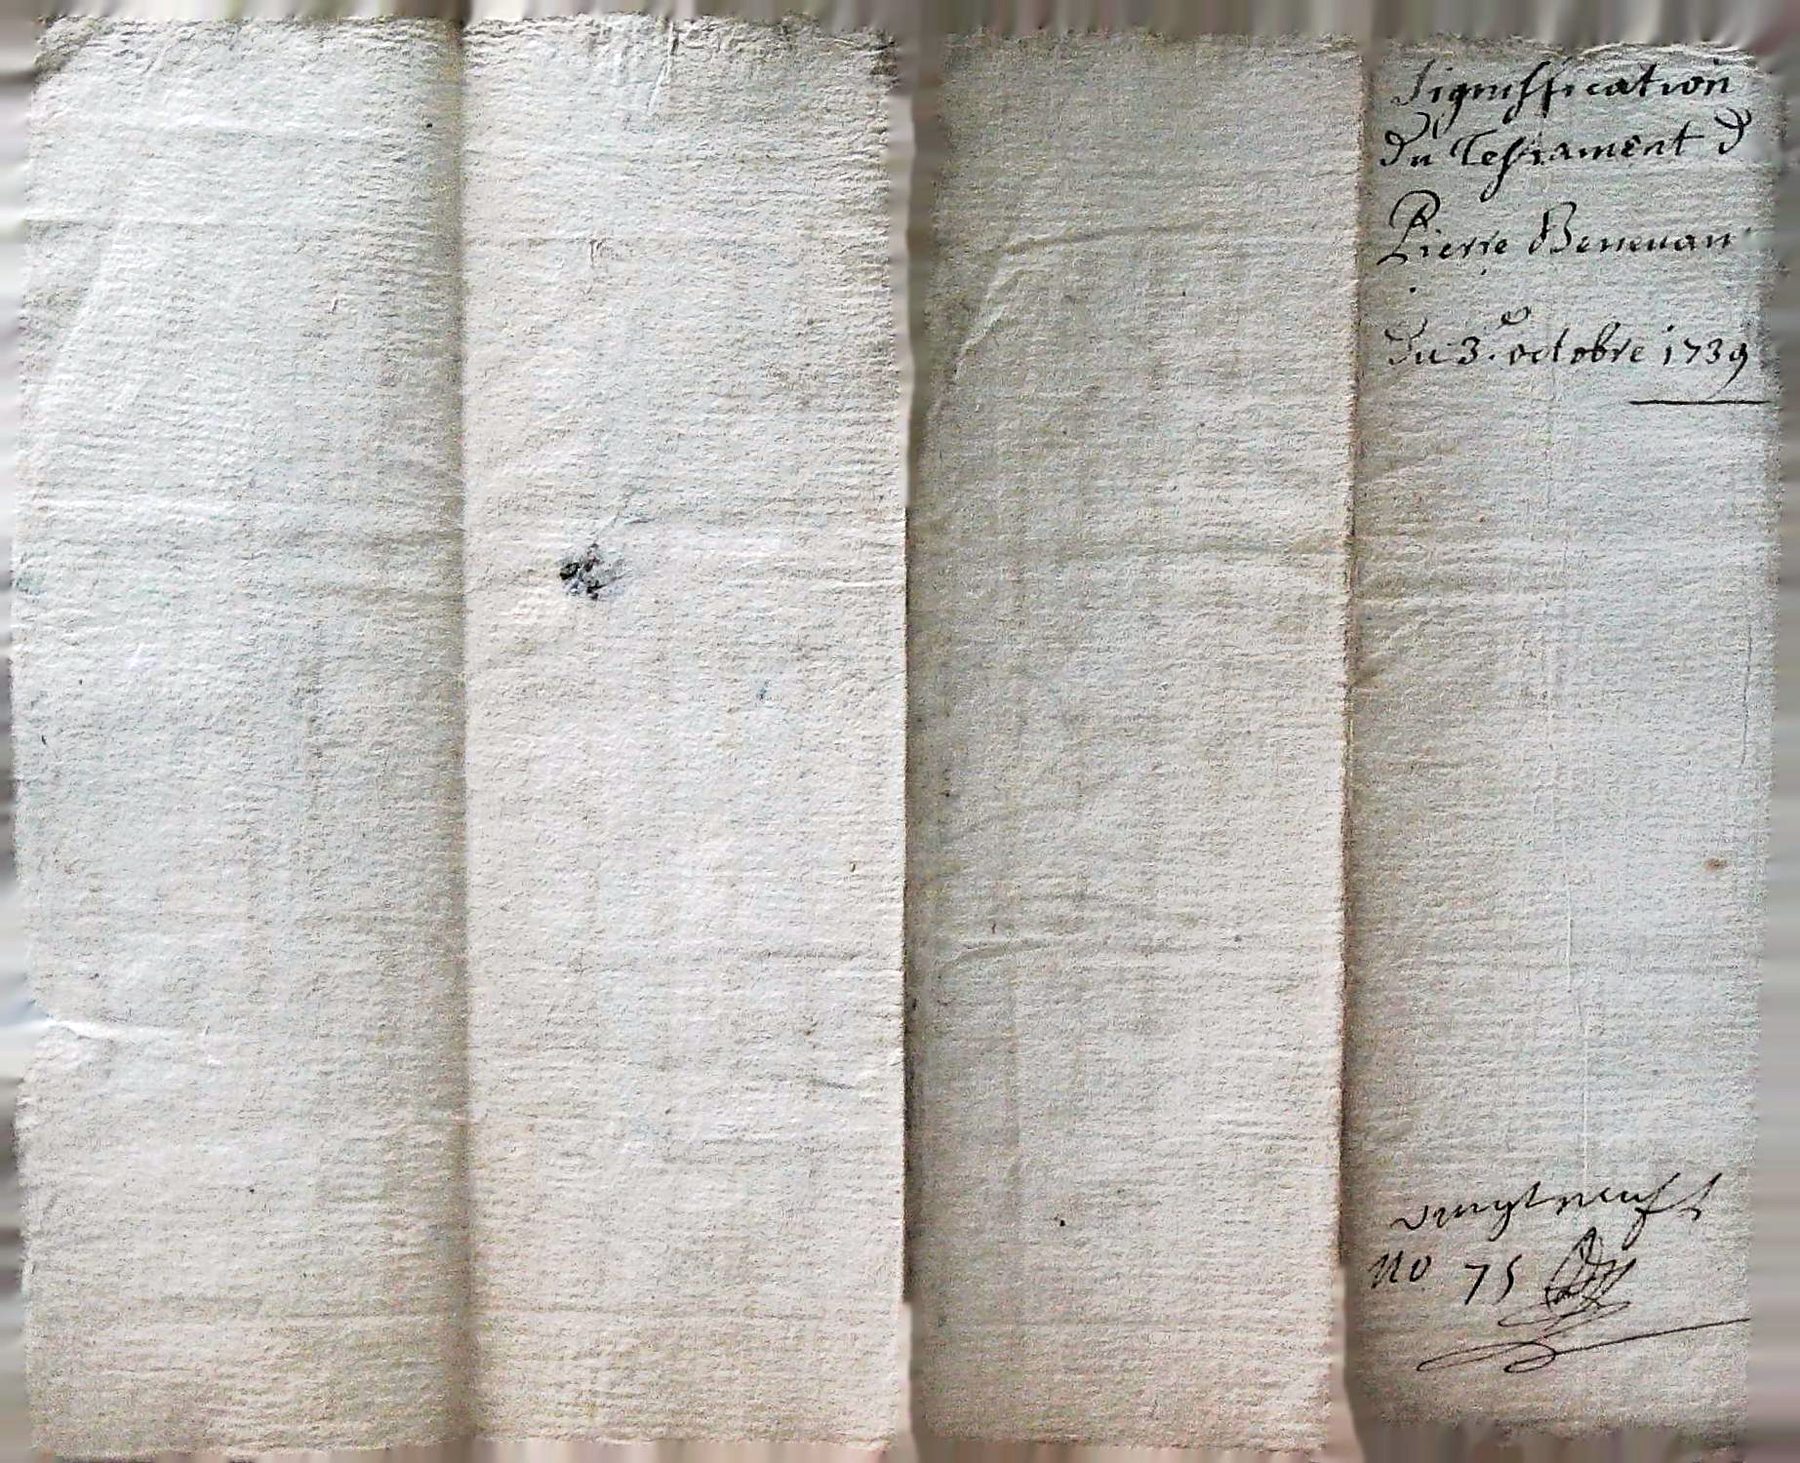 Signiffication
du Testament d
Pierre Beneuan
du 3e. octobre 1739
vingt neuf
no 75